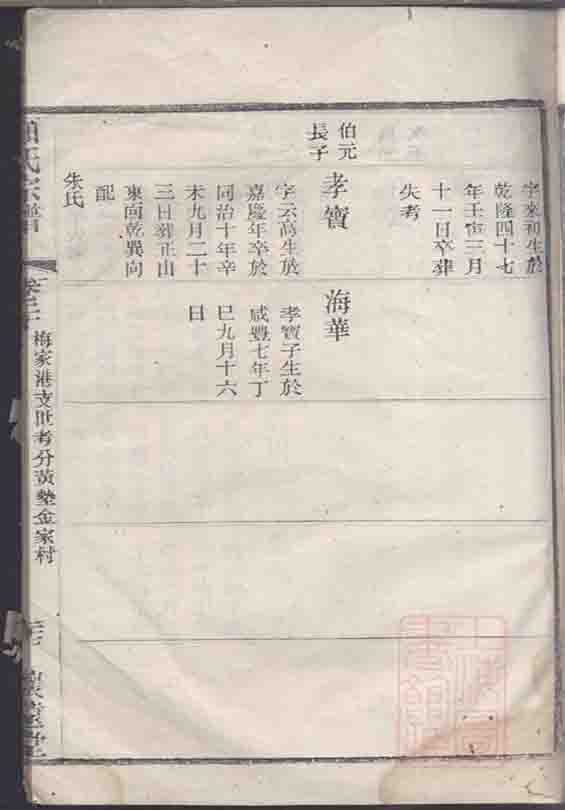 字來生於
乾隆四十七
年壬寅三月
十一日卒葬
失考
伯元
長子
孝寶
字云高生於
嘉慶年卒於
同治十年辛
未九月二十
三日葬正山
東向乾巽向
配
朱氏
海華
孝寶子生於
咸豐七年丁
巳九月十六
日
氏宗譜
梅家港支世考分黄墊金家村
堂